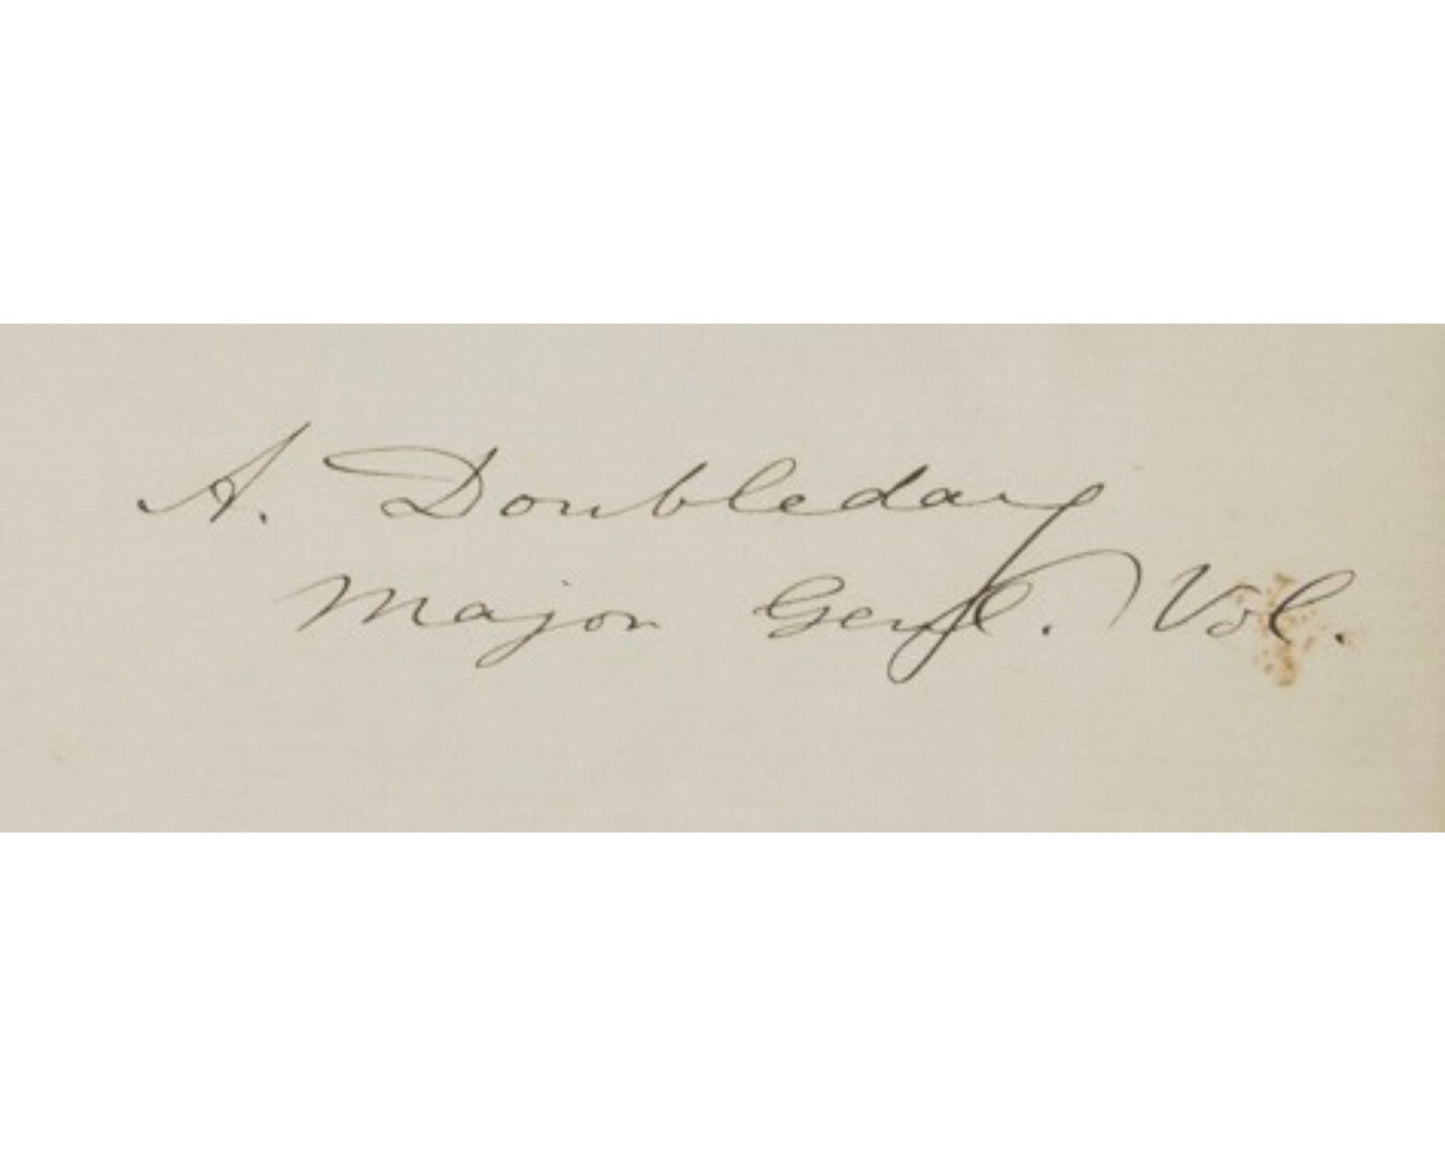 A. Doubleday
Major Genl. Vol.